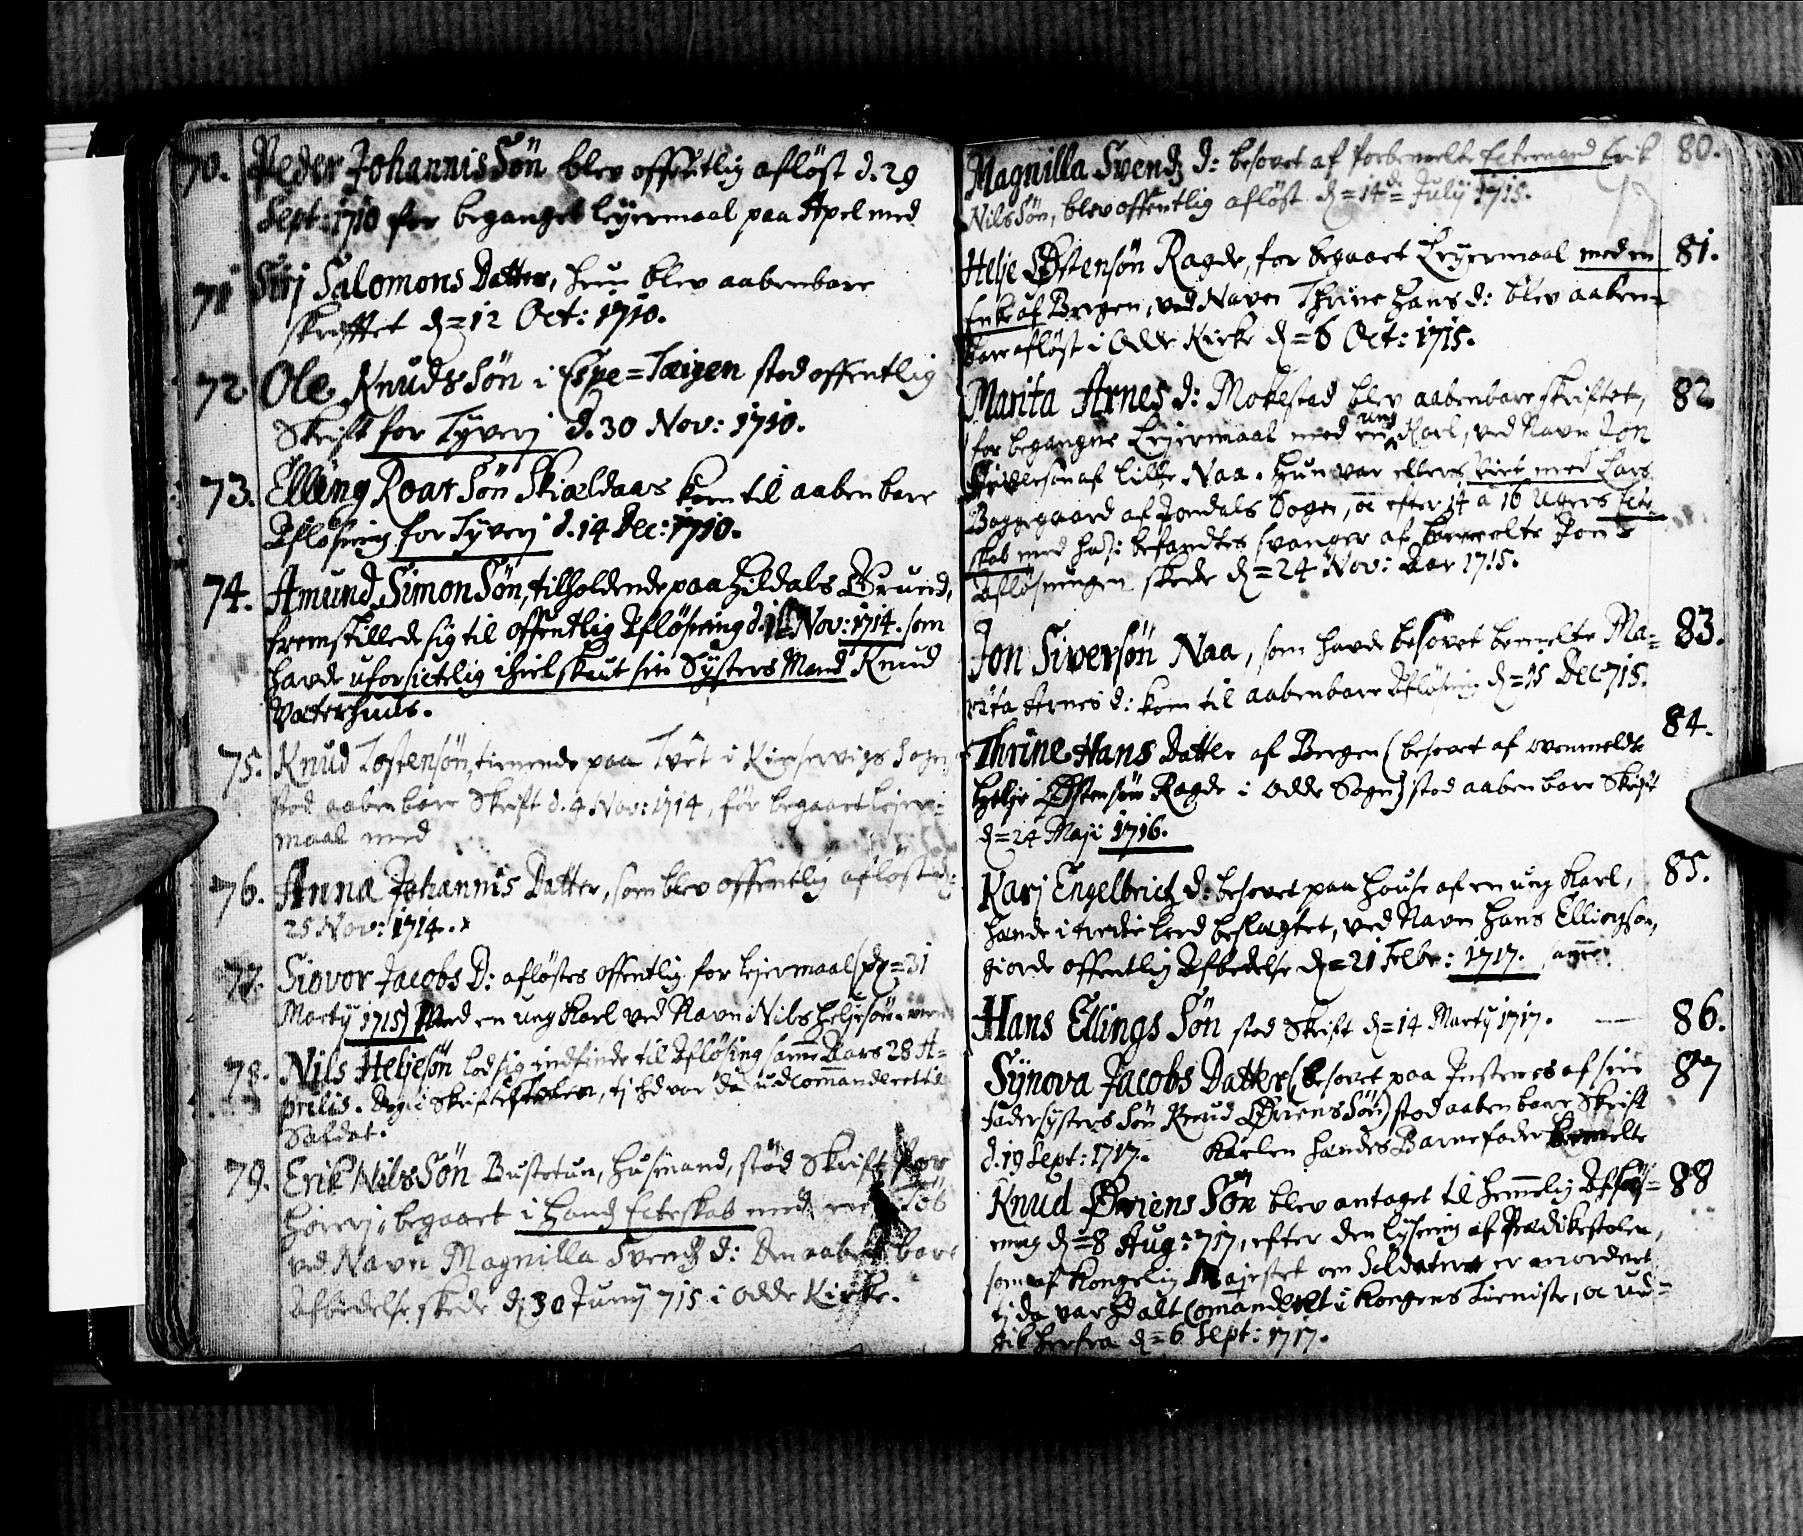 70. Peder Johannis Søn blev offentlig afløst d. 29
Sept: 1710 for beganget lejermaal paa Apel med
71 Siri Salomons Datter, hun blev aabenbare
skrifftet d = 12 Oct: 1710.
72 Ole Knuds Søn i Espe = Teigen stod offentlig
Skrift for Tyverj d. 30 Nov: 1710.
73. Elling Roar Søn Skialdaas kom til aabenbare
Afløsning for Tyverj d. 14 Dec: 1710.
74. Amund Simon Søn, tilholdende paa Hildals Grund,
fremstillede sig til offentlig Afløsning d. Nov: 1714. som
hafde uforsictelig ihielskut sin Systers Mand Knud
75. Knud Tostensøn, tienende paa Tvêt i Kinservigs Sogn
stod aabenbare Skrift d. 4 Nov: 1714, før begaaet lejer=
maal med
76. Anna Johannis Datter, som blev offentlig afløst d:
25 Nov: 1714.
77. Siovor Jacobs D: afløstes offentlig for lejermaal (d = 31
Martij 1715) Med en ung Karl ved Navn Nils Heljesøn.
78. Nils Heljesøn lod sig indfinde til Afløsing samme Aars 28 A=
prilis. Dog i Skriftestolen, tj hd var da udcommanderet til
Saldat.
79. Erik Nils Søn Bustetun, Husmand, stod Skrift For
Horerj, begaaet i Hans Ecteskab med en Tøs
ved Navn Magnilla Svends d: Den aabenbare
Afbedelse skede d. 30 Junij 715 i Odde Kirke.
Magnilla Svends d: besovet af forbemelte Ectemand Erik 80.
Nils Søn, blev offentlig afløst d = 14de Julij 1715.
Helje Østensøn Ragde, for begaaet Lejermaal med en 81.
Enke af Bergen, ved Navn Thrine Hans d: blev aaben=
bare afløst i Odde Kirke d = 6 Oct: 1715.
Marita Arnes d: Mokestad blev aabenbare skriftet, 82
for begangne Lejermaal med en ung Karl, ved Navn Jon
Siversøn af lille Naa. Hun var ellers Viet med Lars
Baggegaard af Jondals Sogn, oc efter 14 a 16 Ugers Ecte
skab med hans: befandtes svanger af bemelte Jon
Afløsningen skede d = 24 Nov: Aar 1715.
Jon Siversøn Naa, som havde besovet bemelte Ma= 83.
rita Arnes d: kom til aabenbare Afløsning d = 15 Dec 715.
Thrine Hans Datter af Bergen (besovet af ovenmeldte 84.
Helje Østensøn Ragde i Odde Sogn) stod aabenbare Skrift
d = 24 Maji 1716.
Karj Engelbricts d: besovet paa House af en ung Karl, 85.
hende i tredie leed beslægtet, ved Navn Hans Ellingsøn,
giorde offentlig Afbedelse d = 21 Febr: 1717.
Hans Ellings Søn stod Skrift d = 14 Martij 1717. 86.
Synova Jacobs Datter (besovet paa Instenes af sin 87
Fadersysters Søn Knud Ørjens Søn) stod aabenbare Skrift
d. 19 Sept: 1717. Karlen hendes Barnefader bemelte
Knud Ørjens Søn blev antaget til hemmelig Afløs= 88
ning d = 8 Aug: 717, efter den lysning af Prædikestolen,
som af Kongelig Majestet om Soldater er anordnet
tj da var hd alt Comanderet i Kongens Tieniste, oc ud=
gik herfra d = 6 Sept: 1717.